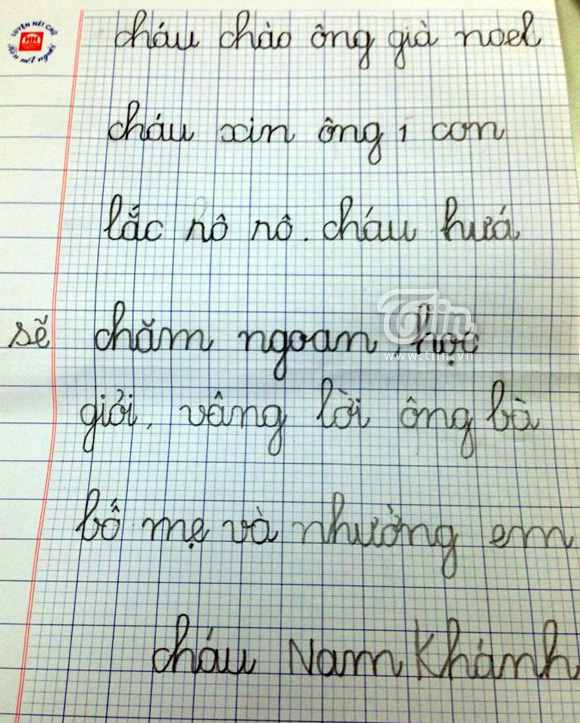 LUYỆN NÉT CHỮ
HH
Rèn nết người
cháu chào ông già noel
cháu xin ông 1 con
lắc nô nô. cháu hưá
sẽ chăm ngoan, học
giỏi, vâng lời ông bà
bố mẹ và nhường em
cháu Nam Khánh
Tiin
www.tiin.vn